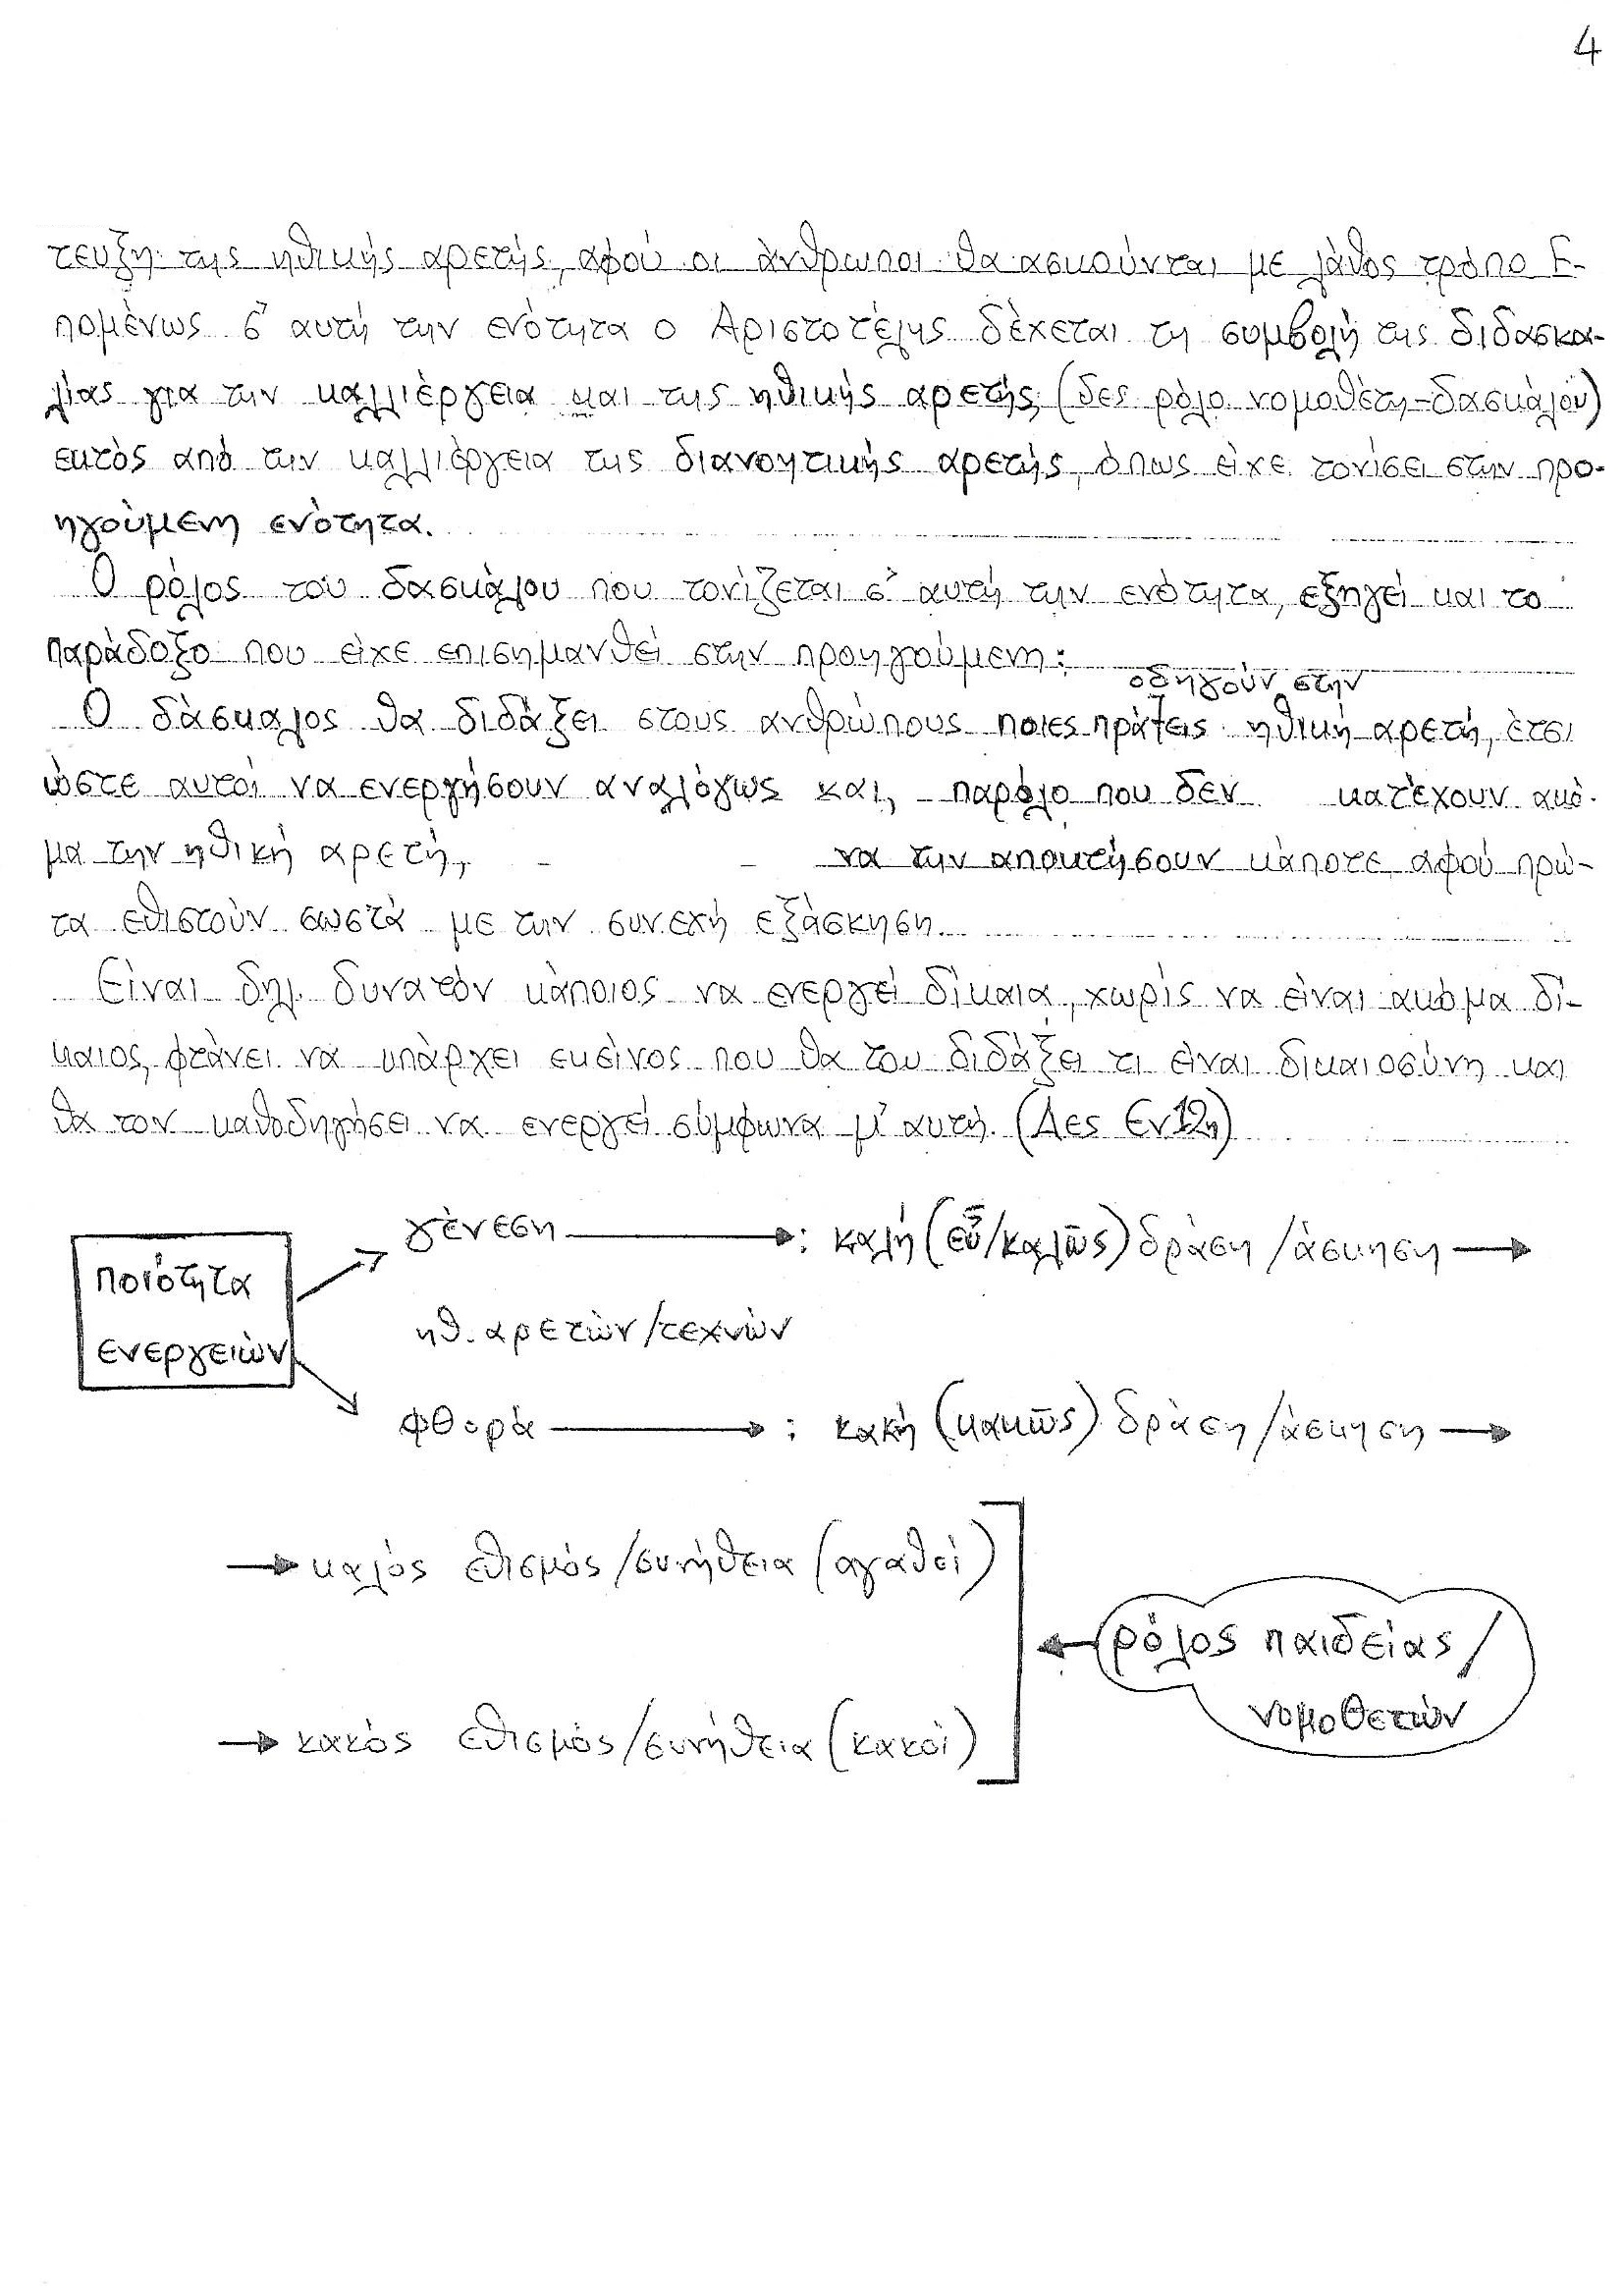 4
τευξη της ηθικής αρετής, αφού οι άνθρωποι θα ασκούνται με λάθος τρόπο Ε-
πομένως σ' αυτή την ενότητα ο Αριστοτέλης δέχεται τη συμβολή της διδασκα-
λίας για την καλλιέργεια και της ηθικής αρετής (δες ρόλο νομοθέτη-δασκάλου)
εκτός από την καλλιέργεια της διανοητικής αρετής, όπως είχε τονίσει στην προ-
ηγούμενη ενότητα.
Ο ρόλος του δασκάλου που τονίζεται σ' αυτή την ενότητα, εξηγεί και το
παράδοξο που είχε επισημανθεί στην προηγούμενη:
οδηγούν στην
Ο δάσκαλος θα διδάξει στους ανθρώπους ποιες πράξεις ηθική αρετή, έτσι
ώστε αυτοί να ενεργήσουν αναλόγως και, παρόλο που δεν κατέχουν ακό-
μα την ηθική αρετή, να την αποκτήσουν κάποτε, αφού πρώ-
τα εθιστούν σωστά με την συνεχή εξάσκηση.
Είναι δηλ. δυνατόν κάποιος να ενεργεί δίκαια, χωρίς να είναι ακόμα δί-
καιος, φτάνει να υπάρχει εκείνος που θα του διδάξει τι είναι δικαιοσύνη και
θα τον καθοδηγήσει να ενεργεί σύμφωνα μ' αυτή. (Δες Εν 12η)
γένεση → : καλή (εὖ/καλῶς) δράση /άσκηση →
ποιότητα
ενεργειών
ηθ. αρετών/τεχνών
φθορά → : κακή (κακῶς) δράση /άσκηση →
→ καλός εθισμός/συνήθεια (αγαθοί)
ρόλος παιδείας /
νομοθετών
→ κακός εθισμός/συνήθεια (κακοί)